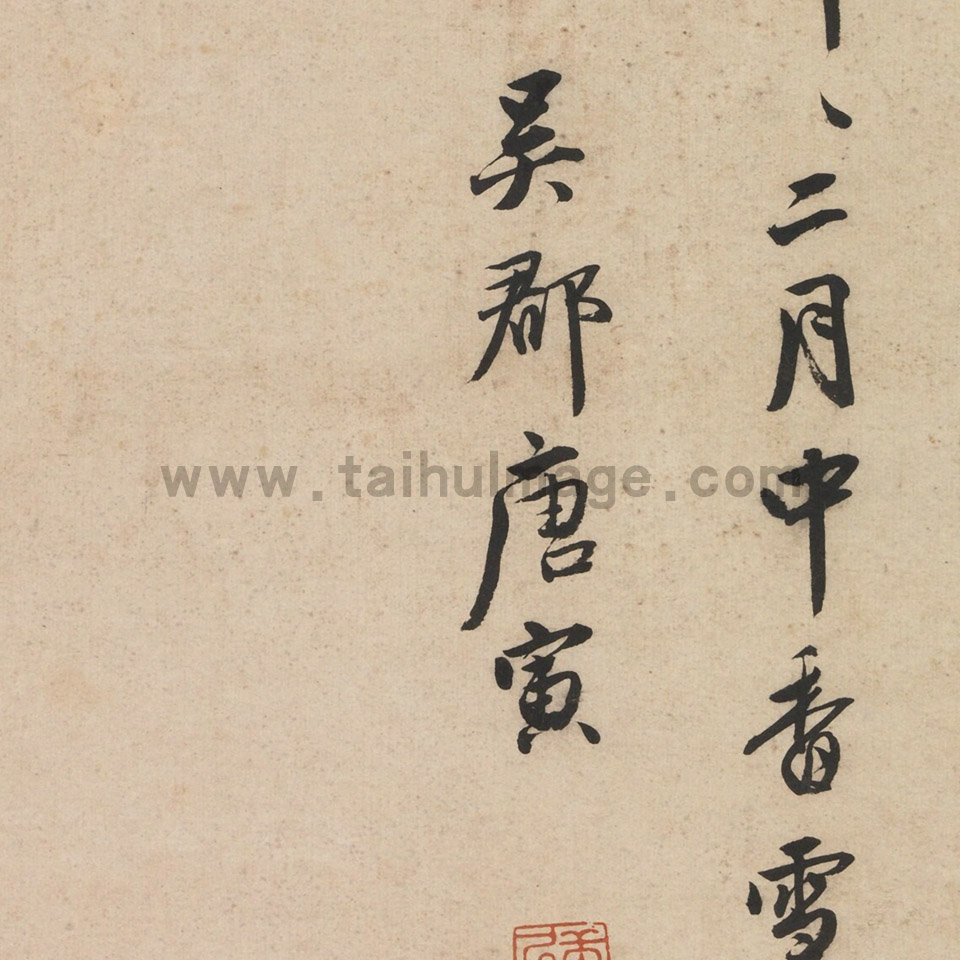 二月中香雪
吳郡唐寅
www.taihuImage.com